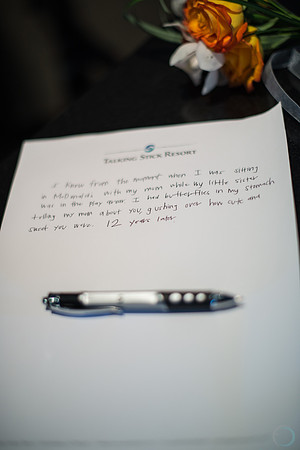 TALKING STICK RESORT
I knew from the moment when I was sitting
in McDonalds with my mom while my little sister
was in the play area. I had butterflies in my stomach
telling my mom about you, gushing over how cute and
sweet you were. 12 years later